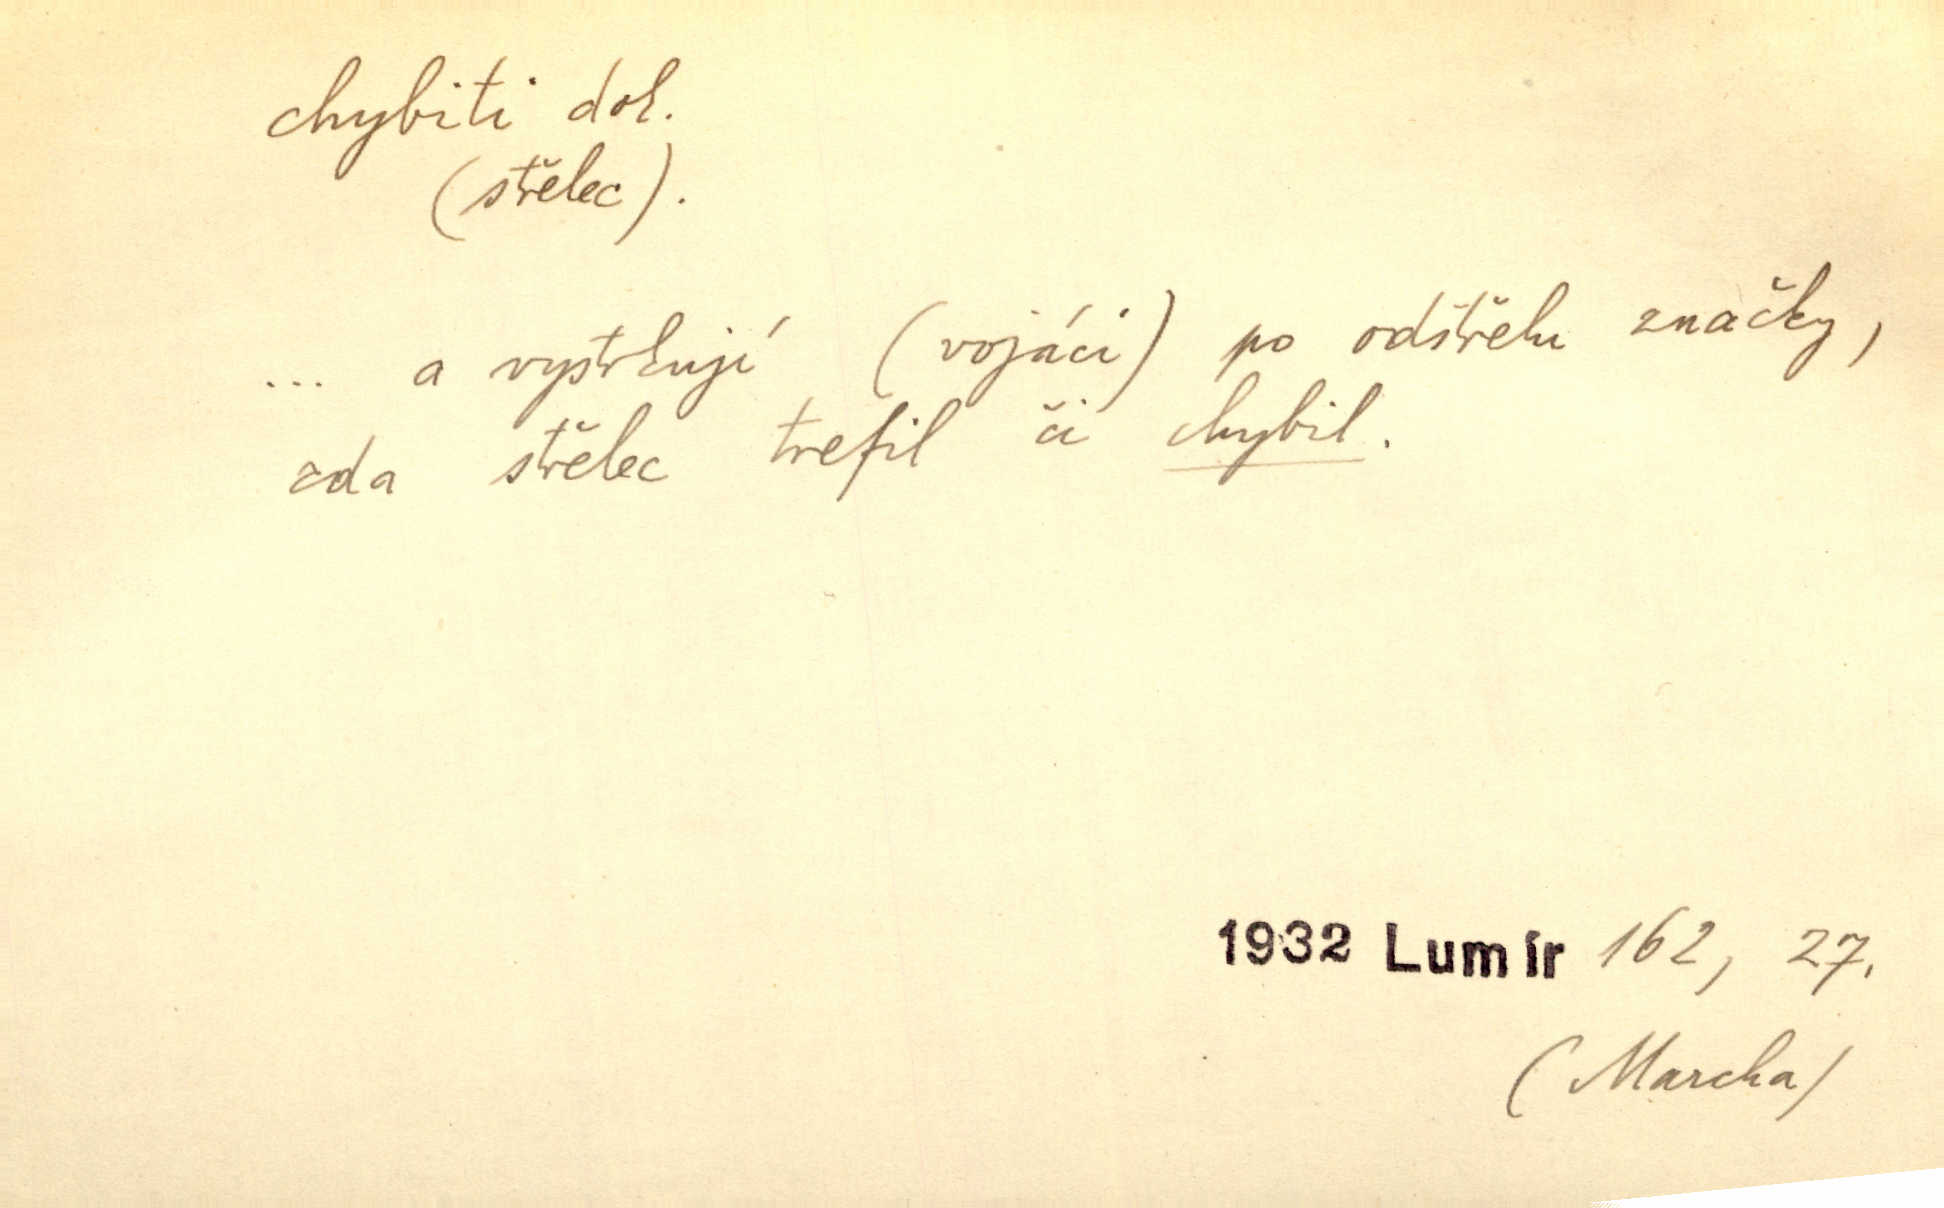 chybiti dok.
(střelec).
... a vystrkují (vojáci) po odstřelu značky,
zda střelec trefil či chybil.
1932 Lumír 162, 27.
(Marcha)